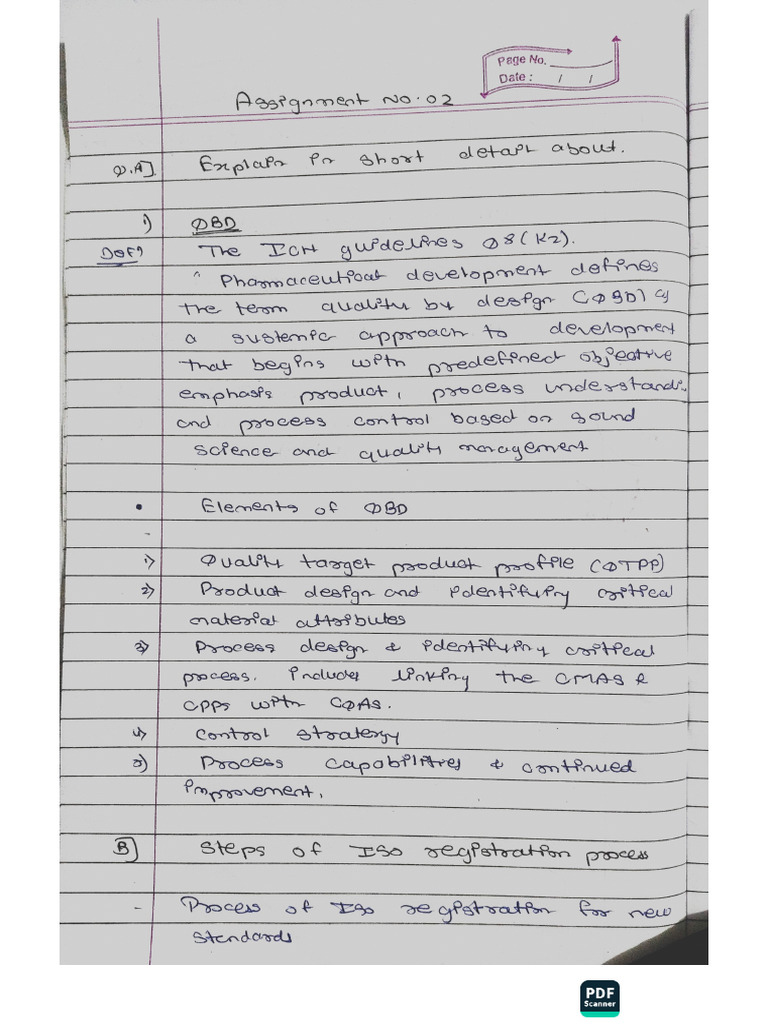 Page No.
Date : / /
Assignment No. 02
Q.A] Explain in short detail about.
1) QBD
Defn The ICH guidelines Q8(R2).
" Pharmaceutical development defines
the term quality by design (QBD) as
a systemic approach to development
that begins with predefined objective
emphasis product, process understandin
and process control based on sound
science and quality management
• Elements of QBD
-
1) Quality target product profile (QTPP)
2) Product design and identifying critical
material attributes
3) Process design & identifying critical
process. includes linking the CMAS &
CPPs with CQAs.
4) Control stratergy
5) Process capabilities & continued
improvement.
B] Steps of ISO registration process
- Process of ISO registration for new
standards
PDF
Scanner